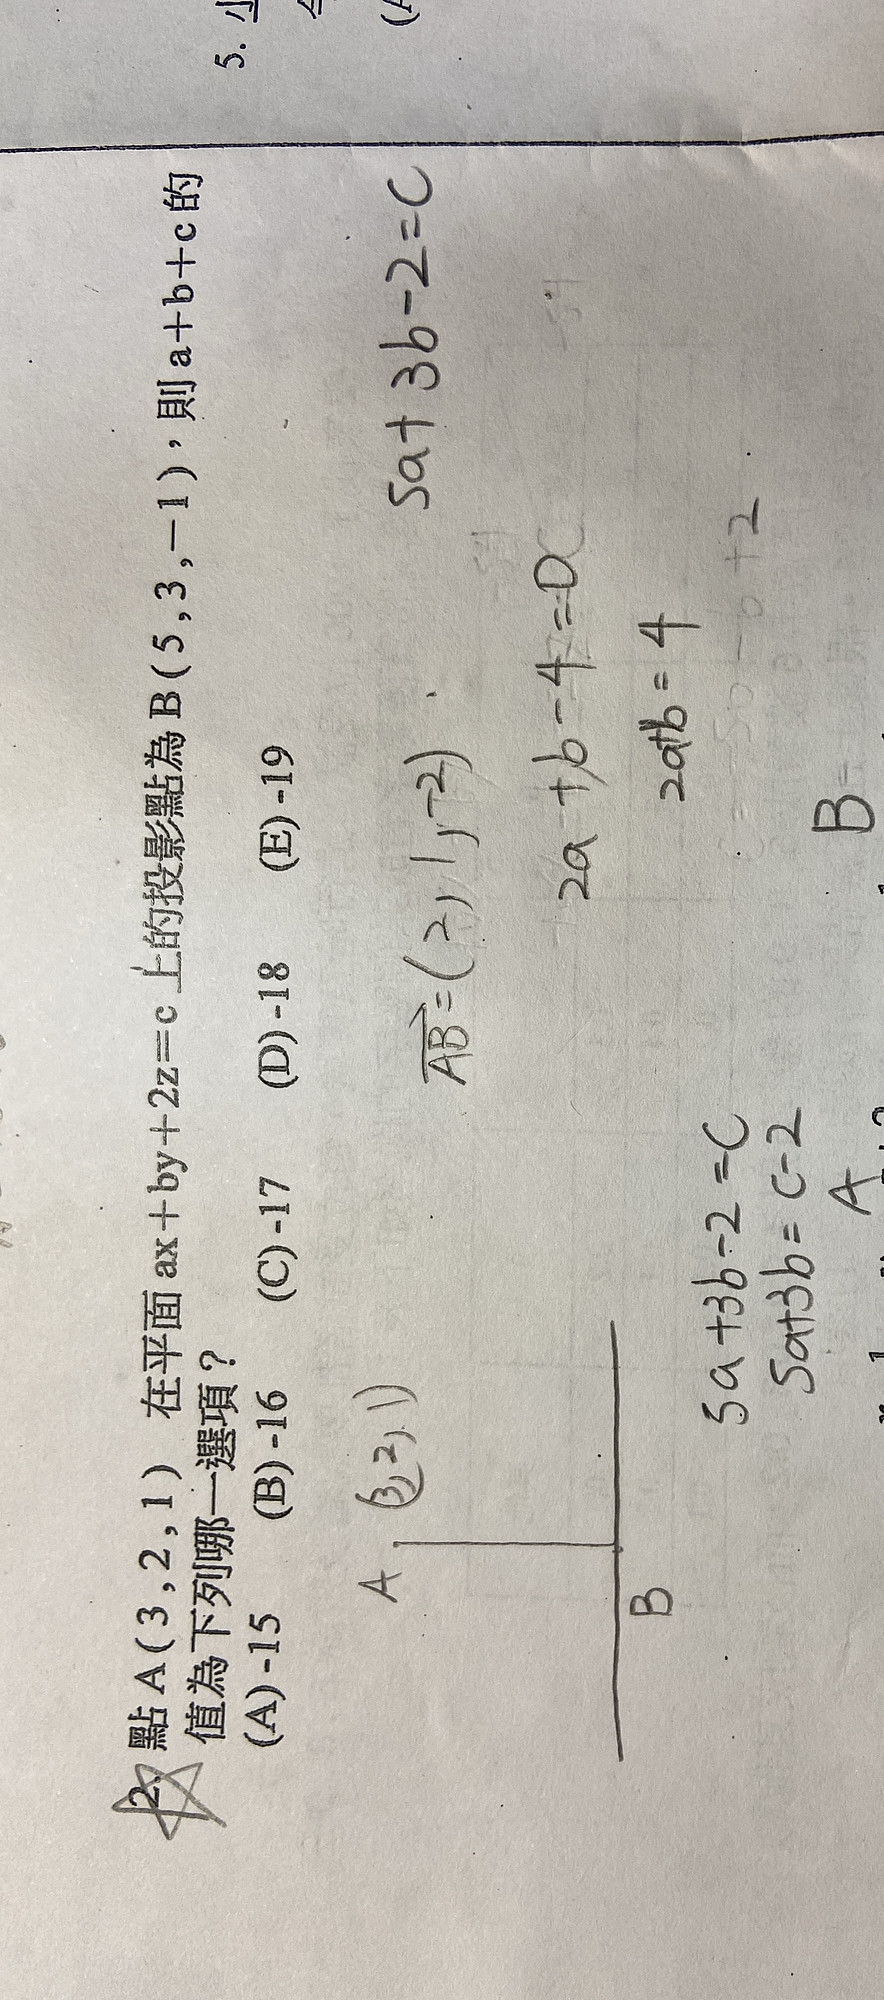 2. 點A(3,2,1) 在平面ax+by+2z=c上的投影點為B(5,3,-1),則a+b+c的
值為下列哪一選項?
(A)-15 (B)-16 (C)-17 (D)-18 (E)-19
A (3,2,1)
B
AB=(2,1,-2)
5a+3b-2=C
2a+b-4=0
2a+b=4
5a+3b-2=C
5a+3b=C-2
A
B
5.